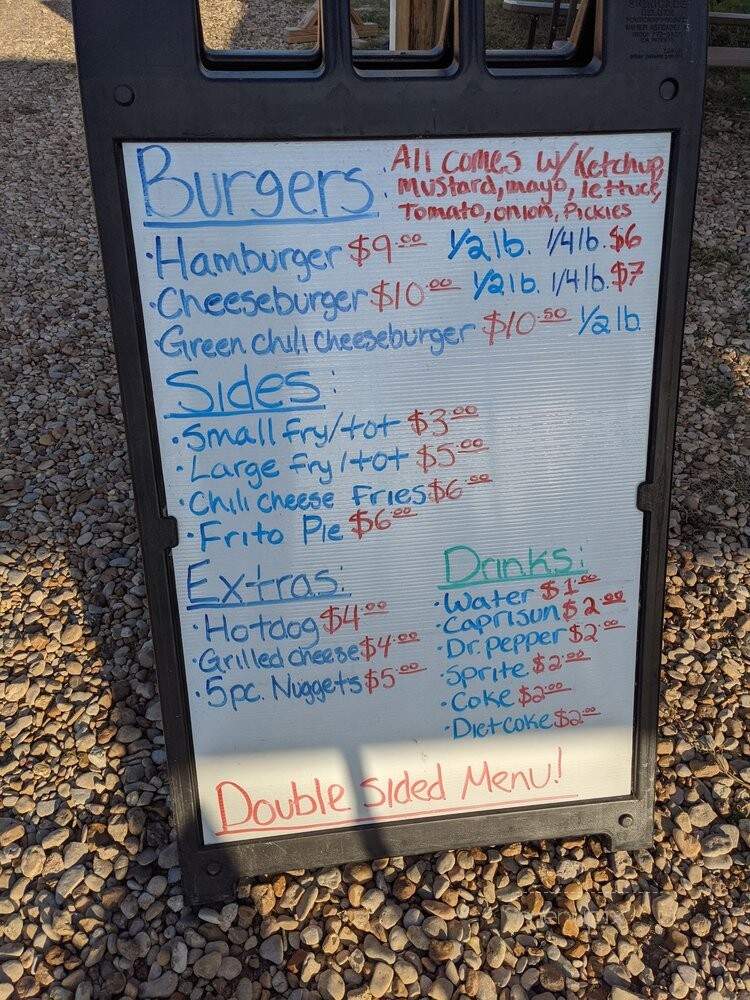 Burgers:
All comes w/ Ketchup,
mustard, mayo, lettuce,
Tomato, onion, Pickles
·Hamburger $9.00 1/2 lb. 1/4 lb. $6
·Cheeseburger $10.00 1/2 lb. 1/4 lb. $7
·Green chili cheeseburger $10.50 1/2 lb
Sides:
·Small fry/tot $3.00
·Large fry/tot $5.00
·Chili cheese Fries $6.00
·Frito Pie $6.00
Extras:
·Hotdog $4.00
·Grilled cheese $4.00
·5pc. Nuggets $5.00
Drinks:
·Water $1.00
·Caprisun $2.00
·Dr. pepper $2.00
·Sprite $2.00
·Coke $2.00
·Diet coke $2.00
Double Sided Menu!